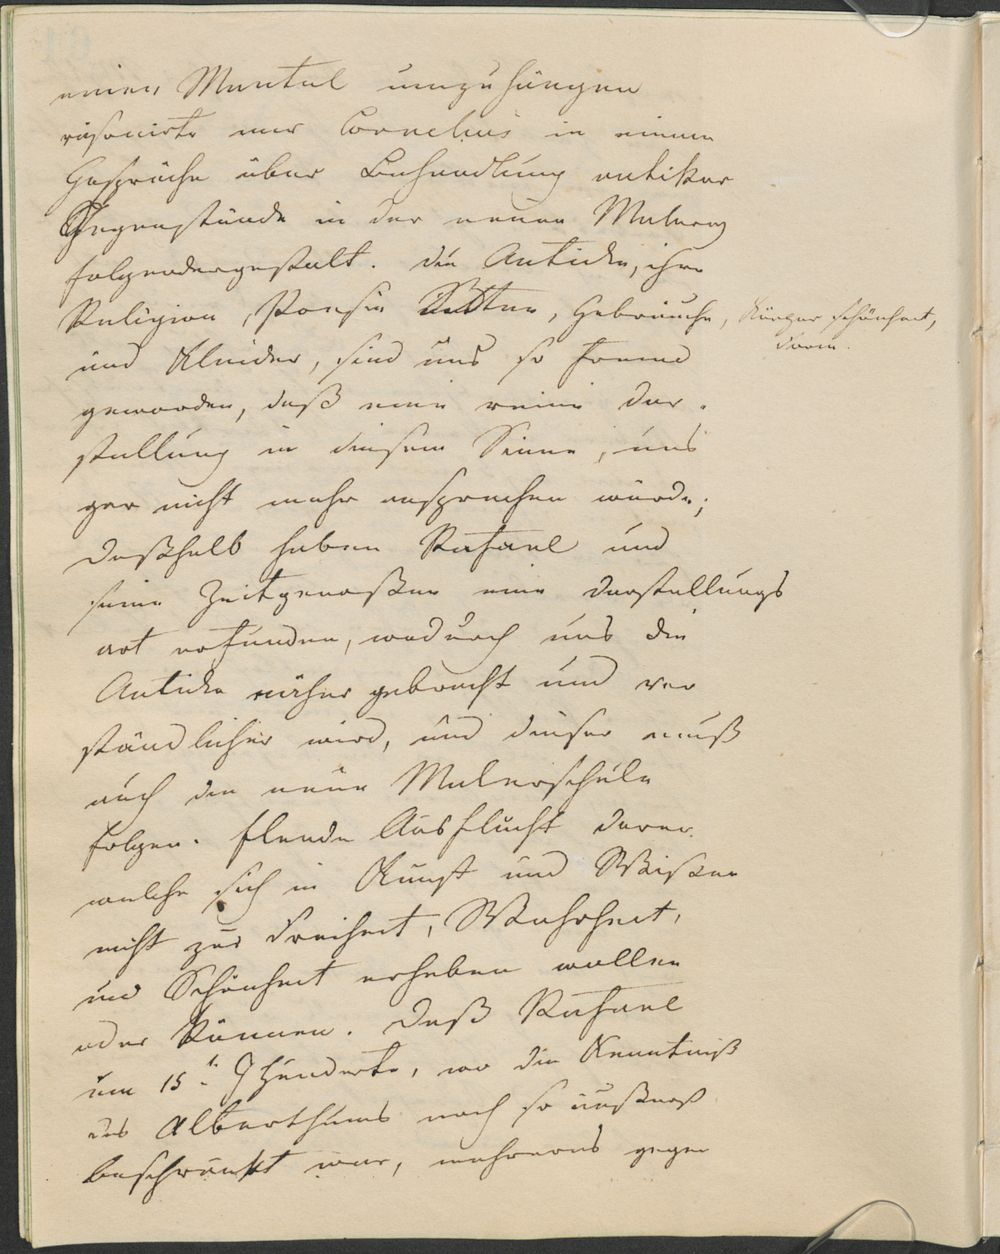 einen Mantel umzuhängen
räsonirte nur Cornelius in einem
Gespräche über Behandlung antiker
Gegenstände in der neuen Malerey
folgendergestalt. die Anticke, ihre
Religion, Poesie Sitten, Gebräuche, Körper schönheit,
Form.
und Kleider, sind uns so fremd
geworden, daß eine reine Dar-
stellung in diesem Sinne, uns
gar nicht mehr ansprechen würde;
deßhalb haben Rafael und
seine Zeitgenoßen eine Darstellungs
art erfunden, wodurch uns die
Anticke näher gebracht und ver
ständlicher wird, und dieser muß
auch die neue Malerschule
folgen. Elende Ausflucht derer
welche sich in Kunst und Wißen
nicht zur Freiheit, Wahrheit,
und Schönheit erheben wollen
oder können. Daß Rafael
im 15t. Jhunderte, wo die Kenntniß
des Alterthums noch so äußerst
beschränkt war, mehreres gegen